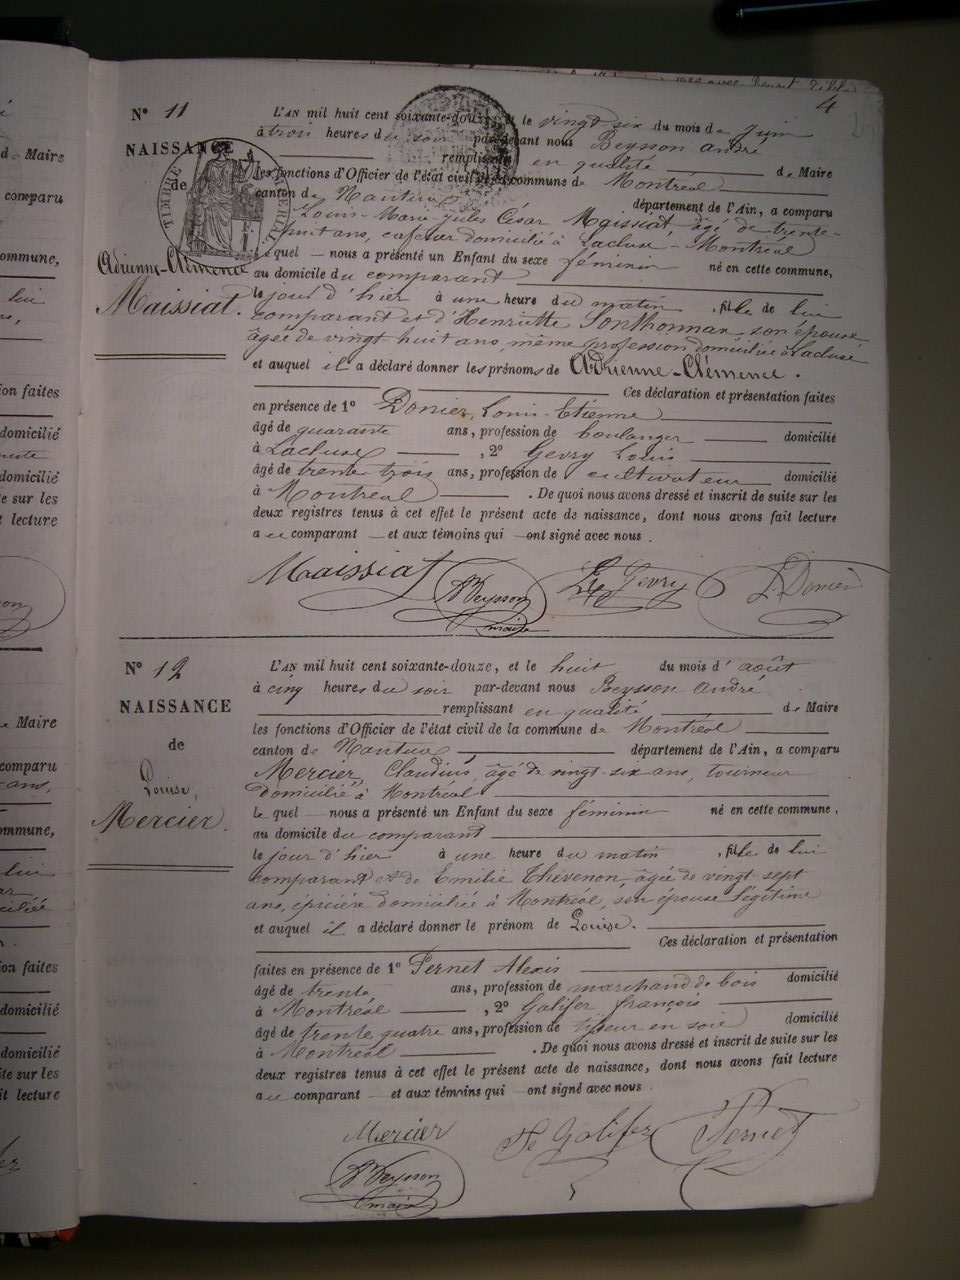 4
N° 11
NAISSANCE
de
Adrienne-Clémence
Maissiat.
TIMBRE
L'AN mil huit cent soixante-douze, et le vingt six du mois de Juin
à trois heures du soir par-devant nous Beysson André
remplissant en qualité de Maire
les fonctions d'Officier de l'état civil de la commune de Montréal
canton de Nantua département de l'Ain, a comparu
Louis-Marie-Jules César Maissiat, âgé de trente-
huit ans, cafetier domicilié à Lacluse-Montréal
lequel nous a présenté un Enfant du sexe féminin né en cette commune,
au domicile du comparant
le jour d'hier à une heure du matin, fille de lui
comparant et d'Henriette Sonthonnax son épouse
âgée de vingt huit ans, même profession domiciliée à Lacluse
et auquel il a déclaré donner les prénoms de Adrienne-Clémence.
Ces déclaration et présentation faites
en présence de 1° Donier, Louis-Etienne
âgé de quarante ans, profession de boulanger domicilié
à Lacluse, 2° Gevry Louis
âgé de trente trois ans, profession de cultivateur domicilié
à Montréal. De quoi nous avons dressé et inscrit de suite sur les
deux registres tenus à cet effet le présent acte de naissance, dont nous avons fait lecture
au comparant et aux témoins qui ont signé avec nous.
Maissiat Beysson Gevry L. Donier
maire
N° 12
NAISSANCE
de
Louise,
Mercier.
L'AN mil huit cent soixante-douze, et le huit du mois d'août
à cinq heures du soir par-devant nous Beysson André
remplissant en qualité de Maire
les fonctions d'Officier de l'état civil de la commune de Montréal
canton de Nantua département de l'Ain, a comparu
Mercier, Claudius, âgé de vingt-six ans, tourneur
domicilié à Montréal
lequel nous a présenté un Enfant du sexe féminin né en cette commune,
au domicile du comparant
le jour d'hier à une heure du matin, fille de lui
comparant et de Emilie Thévenon, âgée de vingt sept
ans, épicière domiciliée à Montréal, son épouse légitime
et auquel il a déclaré donner le prénom de Louise.
Ces déclaration et présentation
faites en présence de 1° Pernet Alexis
âgé de trente ans, profession de marchand de bois domicilié
à Montréal, 2° Galifer françois
âgé de trente quatre ans, profession de tisseur en soie domicilié
à Montréal. De quoi nous avons dressé et inscrit de suite sur les
deux registres tenus à cet effet le présent acte de naissance, dont nous avons fait lecture
au comparant et aux témoins qui ont signé avec nous.
Mercier Galifer Pernet
Beysson
maire